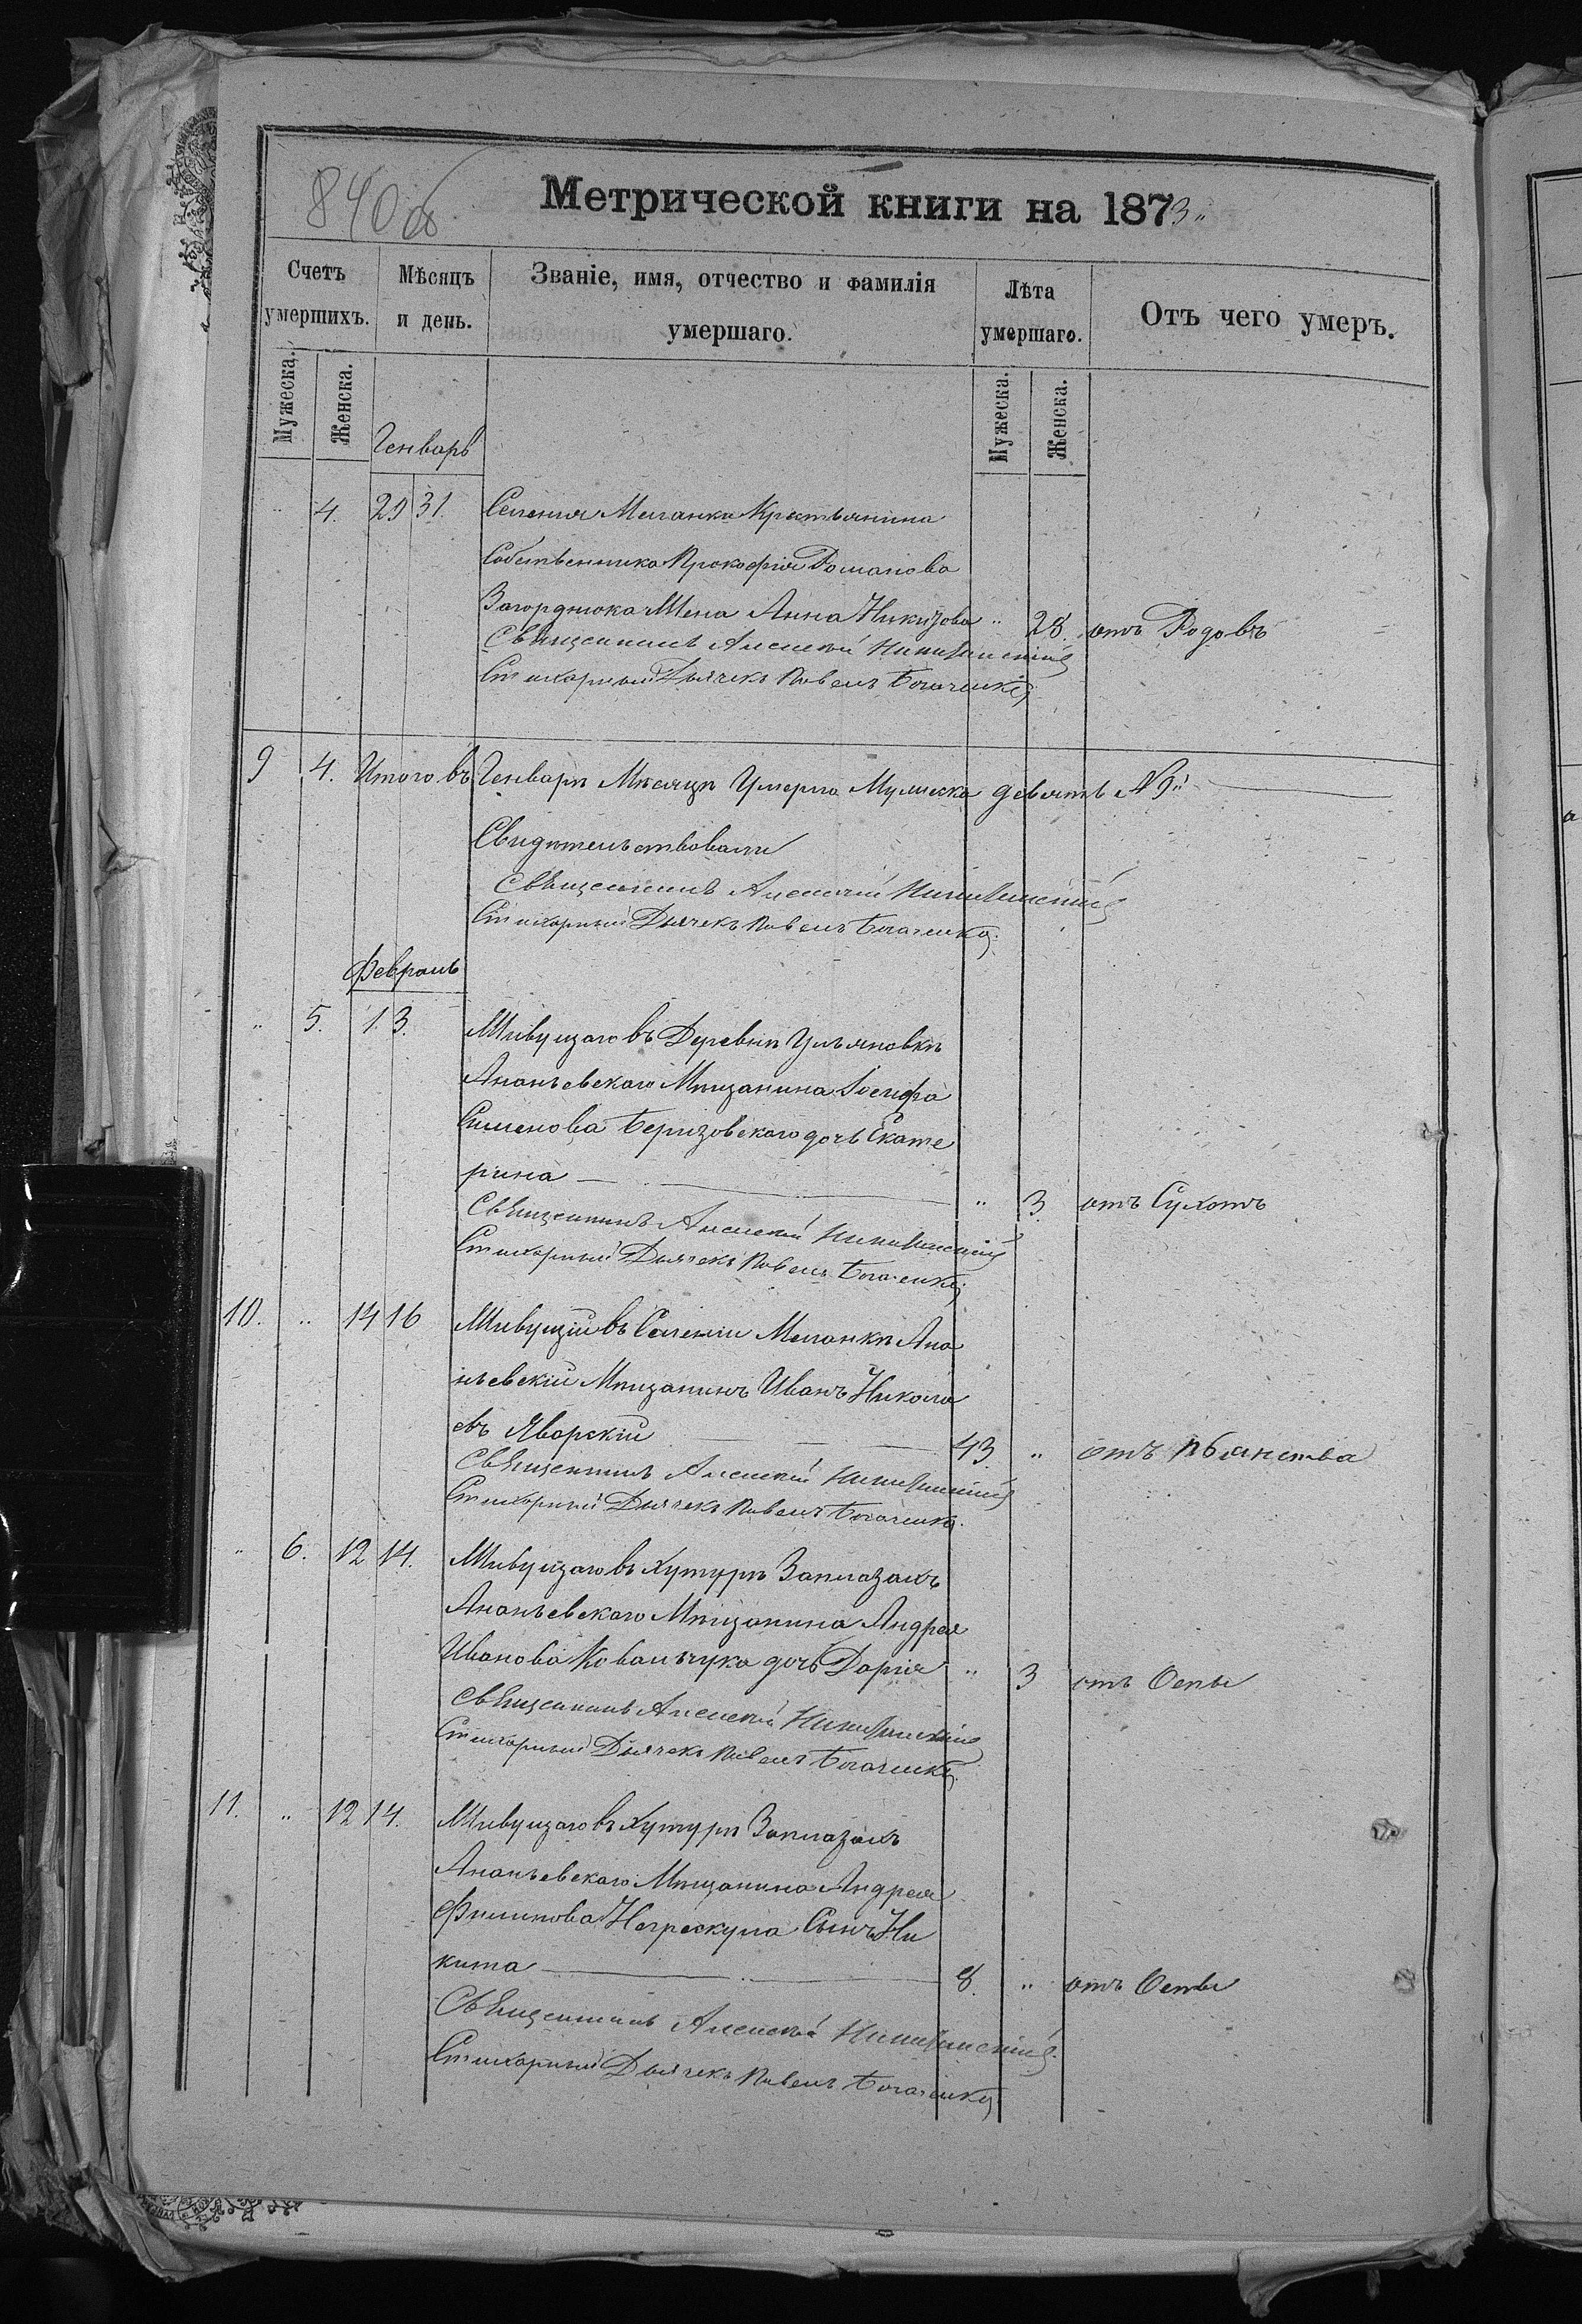 840об
Метрической книги на 1873"
Счетъ умершихъ.
Мѣсяцъ и день.
Званіе, имя, отчество и фамилія умершаго.
Лѣта умершаго.
Отъ чего умеръ.
Мужеска.
Женска.
Мужеска.
Женска.
Генварь
" 4. 29 31. Селенія Маланки Крестьянина
Собственника Прокофія Романова
Загорднюка Жена Анна Никитова " 28. отъ Родовъ
Священникъ Алексей
Стихарный Дьячекъ Павелъ
9 4. Итого въ Генварѣ Мѣсяцѣ Умерло Мужеска девять №9"
Свидѣтельствовали
Священникъ Алексей
Стихарный Дьячекъ Павелъ
Февраль
" 5. 1. 3. Живущаго въ Деревнѣ Ульяновкѣ
Ананьевскаго Мѣщанина Іосифа
Семенова Березовскаго дочь Екате
рина " 3. отъ Сухотъ
Священникъ Алексей
Стихарный Дьячекъ Павелъ
10. " 14 16 Живущій въ Селеніи Маланкѣ Ана
ньевскій Мѣщанинъ Иванъ Никола
евъ Яворскій 43. " отъ пьянства
Священникъ Алексей
Стихарный Дьячекъ Павелъ
" 6. 12 14. Живущаго въ Хуторѣ Заплазахъ
Ананьевскаго Мѣщанина Андрея
Иванова Ковальчука дочь Дарія " 3 отъ Оспы
Священникъ Алексей
Стихарный Дьячекъ Павелъ
11. " 12 14. Живущаго въ Хуторѣ Заплазахъ
Ананьевскаго Мѣщанина Андрея
Филипова Негрескула Сынъ Ни
кита 8. " отъ Оспы
Священникъ Алексей
Стихарный Дьячекъ Павелъ